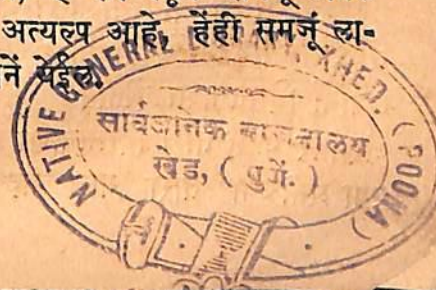 अत्यल्प आहे, हेंही समजूं ला-
नें येईल.
NATIVE GENERAL LIBRARY, KHED. (POONA)
सार्वजनिक वाचनालय
खेड, ( पुणें. )